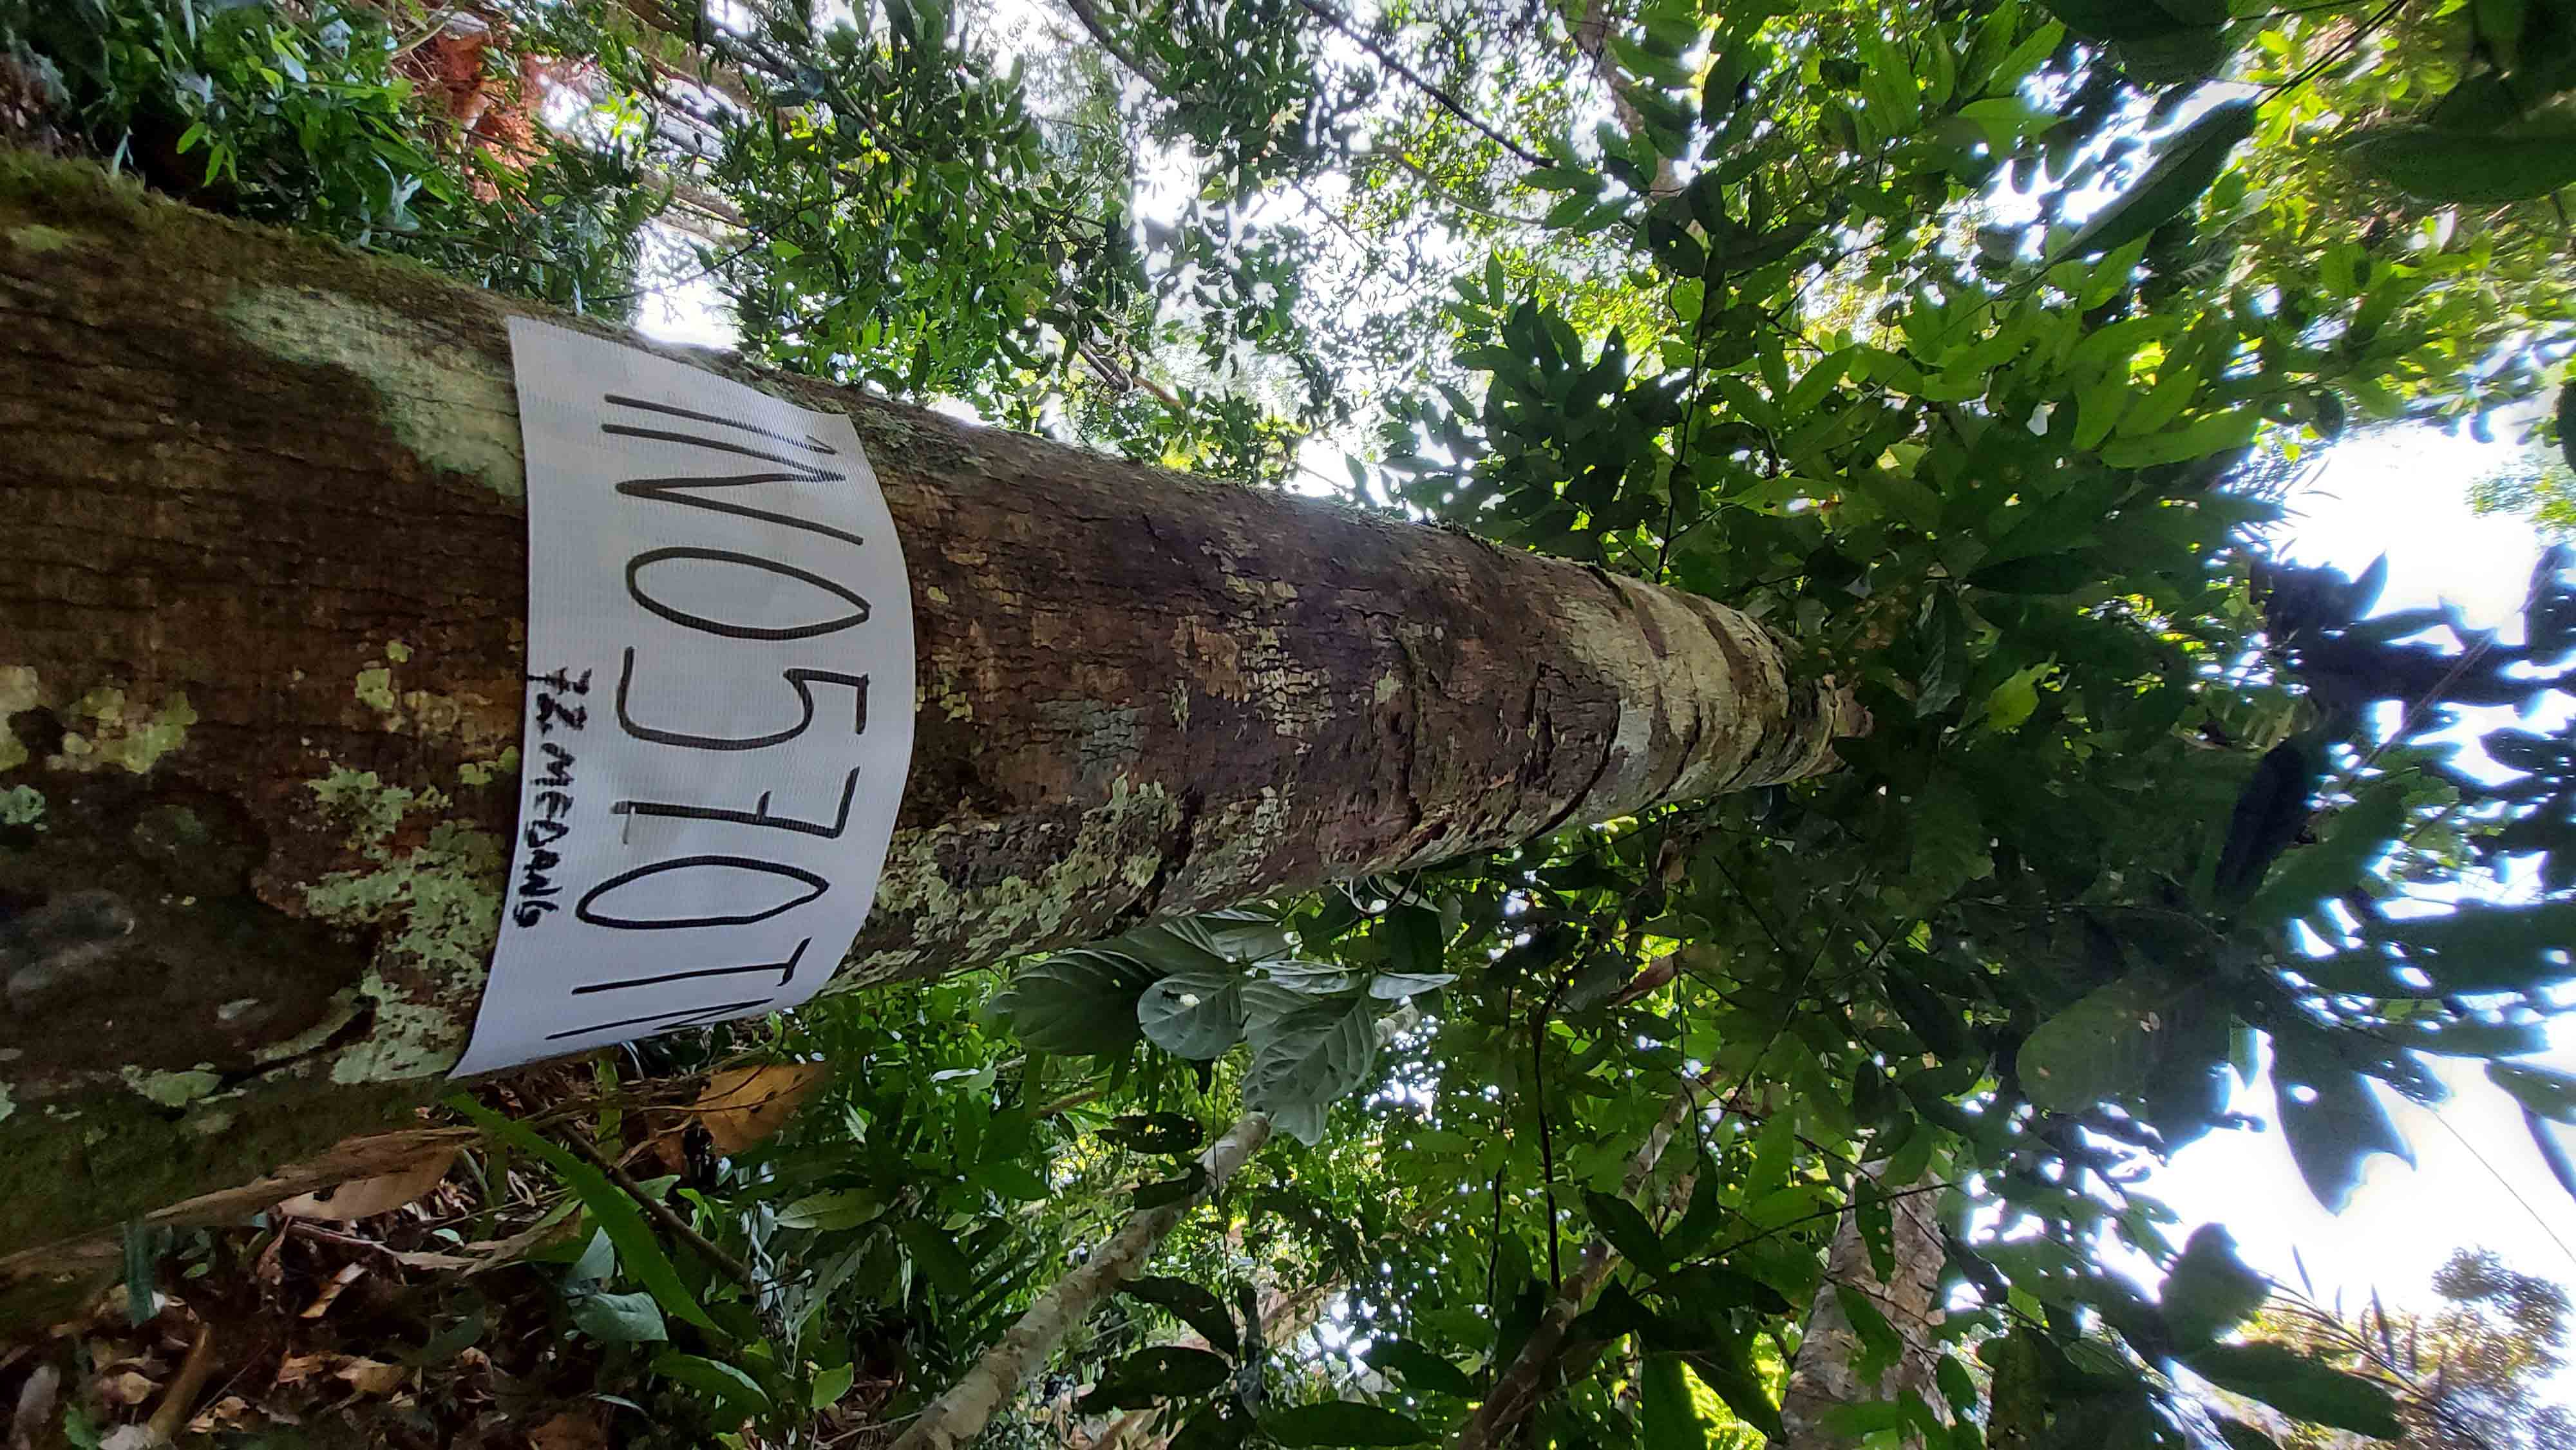 1N0570TM
72. MEDANG